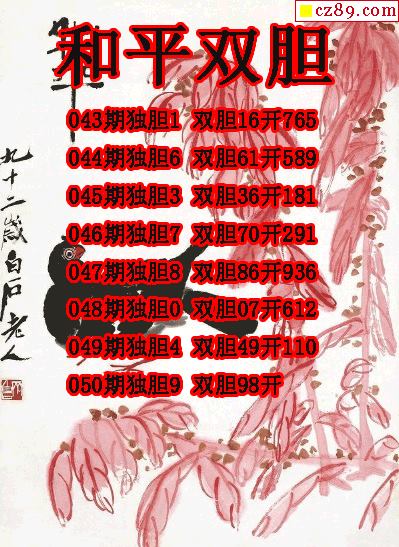 cz89.com
和平双胆
043期独胆1 双胆16开765
044期独胆6 双胆61开589
045期独胆3 双胆36开181
046期独胆7 双胆70开291
047期独胆8 双胆86开936
048期独胆0 双胆07开612
049期独胆4 双胆49开110
050期独胆9 双胆98开
九十二岁白石老人